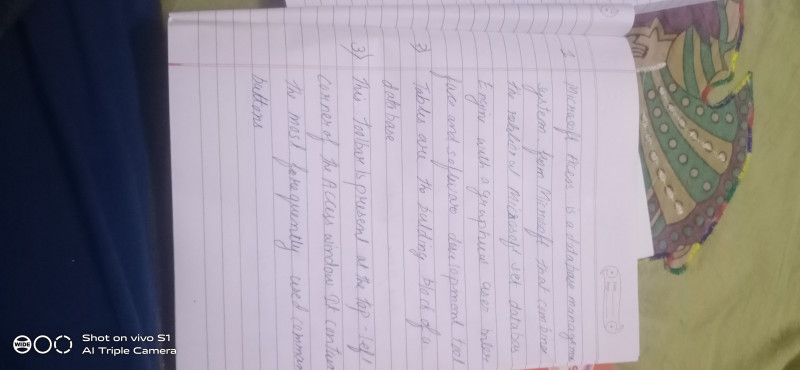 1 Microsoft Access is a database managem
system from Microsoft that combine
the relational Microsoft Jet databas
Engine with a graphical user inter
face and software development tool
2) Tables are the building block of a
database
3) This Toolbar is present at the top-left
corner of the Access window It contain
The most ferequently used comman
buttons
WIDE
Shot on vivo S1
AI Triple Camera